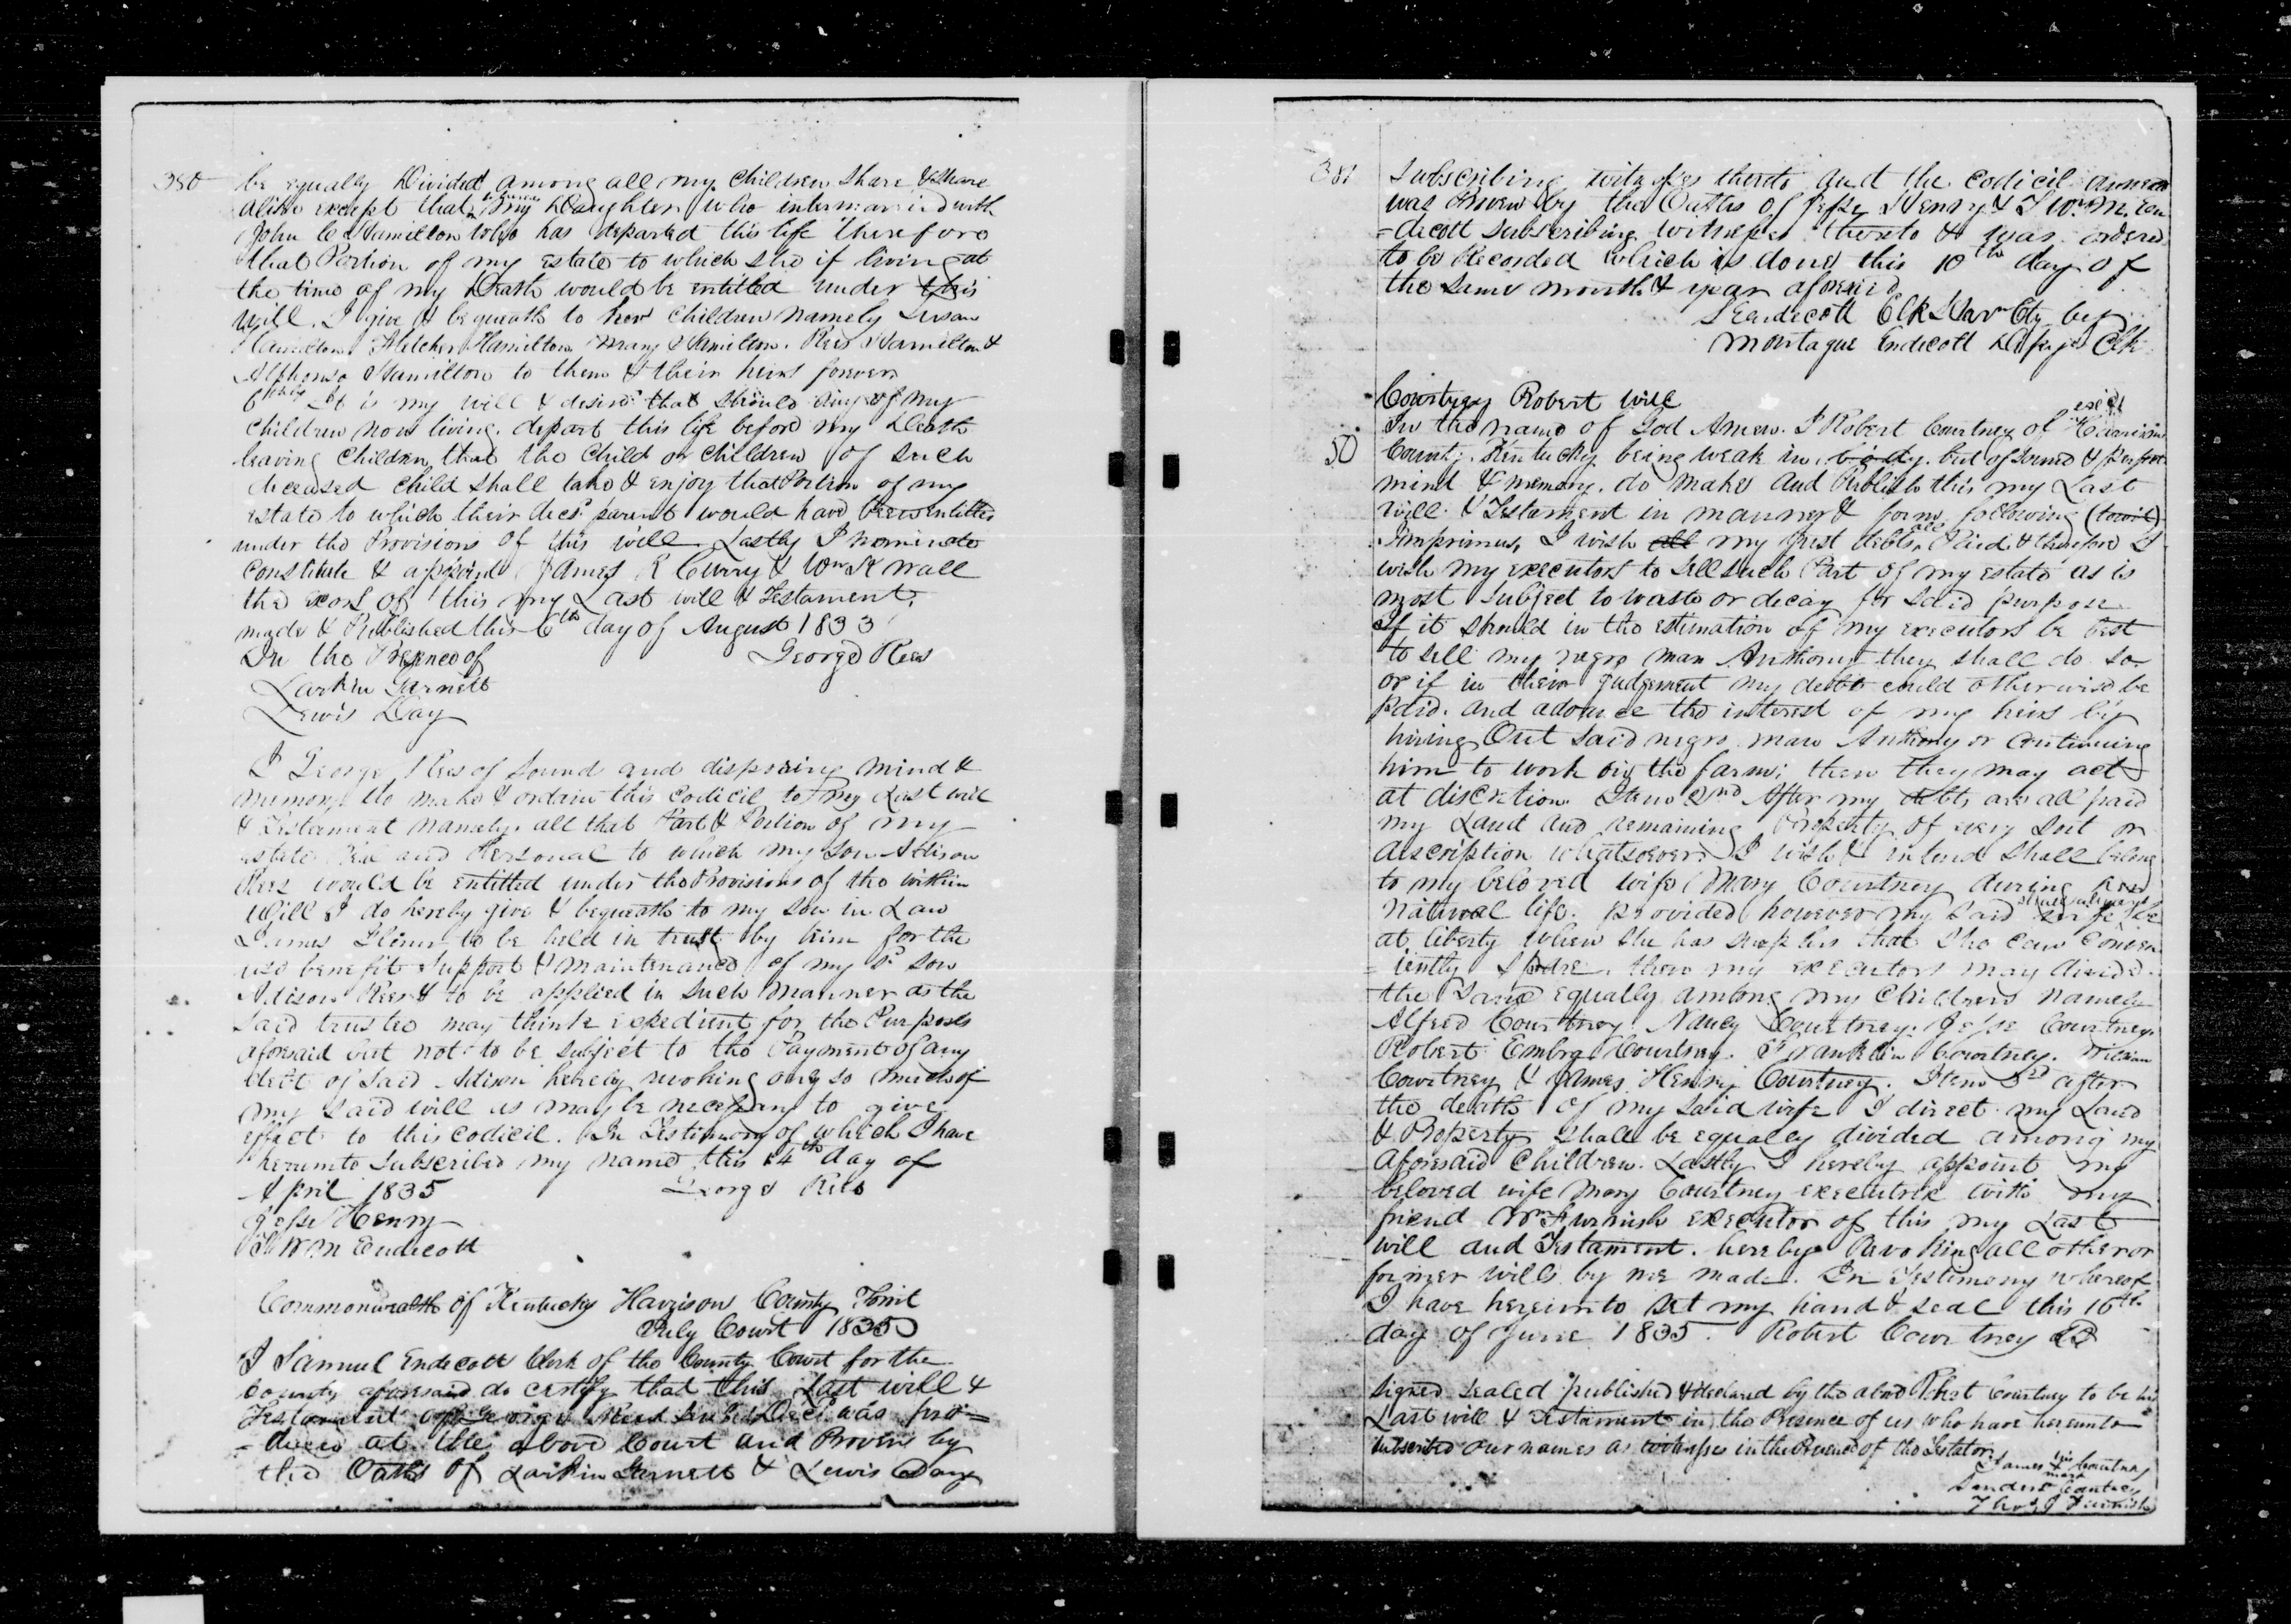 380
be equally Divided among all my children share & share
alike except that my Daughter who intermarried with
John C Hamilton who has departed this life therefore
that Portion of my estate to which she if living at
the time of my Death would be entitled under this
will. I give & bequeath to her children namely Susan
Hamilton Fletcher Hamilton Mary Hamilton. Rees Hamilton &
Alphonso Hamilton to them & their heirs forever
6thly It is my will & desire that should any of my
children now living. depart this life before my Death
leaving children, that the child or children of such
deceased child shall take & enjoy that Portion of my
estate to which their decd parent would have been entitled
under the Provisions of this will. Lastly I nominate
constitute & appoint James R Curry & Wm K Wall
the exors of this my Last will & Testament,
made & Published this 6th day of August 1833
In the Presence of George Rees
Larkin Garnett
Lewis Day
I George Rees of sound and disposing mind &
memory do make & ordain this codicil to my Last will
& Testament namely. all that Part & Portion of my
estate real and Personal to which my son Addison
Rees would be entitled under the Provisions of the within
will I do hereby give & bequeath to my son in Law
James to be held in trust by him for the
use benefit support & maintenance of my sd son
Adison Rees & to be applied in such manner as the
said trustee may think expedient for the Purposes
aforesaid but not to be subject to the Payment of any
debt of said Adison hereby revoking only so much of
my said will as may be necessary to give
effect to this codicil. In Testimony of which I have
hereunto subscribed my name this 14th day of
April 1835 George Rees
Jesse Henry
Wm Endicott
Commonwealth of Kentucky Harrison County Towit
July Court 1835
I Samuel Endecott Clerk of the County Court for the
county aforesaid do certify that this Last will &
Testament of George Rees Decd was pro=
=duced at the above Court and Proven by
the Oaths of Larkin Garnett & Lewis Day
381
Subscribing witnesses thereto and the codicil annexed
was Proven by the Oaths of Jesse Henry & Wm M. En
=decott subscribing witnesses thereto & was ordered
to be Recorded which is done this 10th day of
the same month & year aforesaid
S Endecott Clk Har Cty by
Montague Endecott Clk
Courtney Robert will
In the name of God Amen. I Robert Courtney of Harrison
50
County. Kentucky being weak in body. but of sound & perfect
mind & memory. do make and Publish this my Last
will & Testament in manner & form following (towit)
Imprimus, I wish all my just debts all Paid & therefore I
wish my executors to sell such Part of my estate as is
most subject to waste or decay for said purpose
If it should in the estimation of my executors be best
to sell my negro man Anthony they shall do so
or if in their judgement my debts could otherwise be
paid. and advance the interest of my heirs by
hiring Out said negro man Anthony or continuing
him to work on the farm; then they may act
at discretion. Item 2nd After my debts are all paid
my Land and remaining Property of every sort or
description whatsoever I wish & intend shall belong
to my beloved wife Mary Courtney during her
natural life. provided however my said wife be
at liberty when she has that she can conven
=iently spare. then my executors may divide
the same equally among my children namely
Alfred Courtney Nancy Courtney. Jesse Courtney.
Robert Embry Courtney. Franklin Courtney. William
Courtney & James Henry Courtney. Item 3rd after
the death of my said wife I direct my Land
& Property shall be equaley divided among my
aforesaid children. Lastly I hereby appoint my
beloved wife Mary Courtney executrix with my
friend Wm Furnish executor of this my Last
will and Testament. hereby Revoking all other or
former wills by me made. In Testimony whereof
I have hereunto set my hand & seal this 16th
day of June 1835. Robert Courtney
Signed sealed published & declared by the above Robt Courtney to be his
Last will & testament in the Presence of us who have hereunto
subscribed our names as witnesses in the Presence of the Testator
James his mark Courtney
Courtney
Furnish